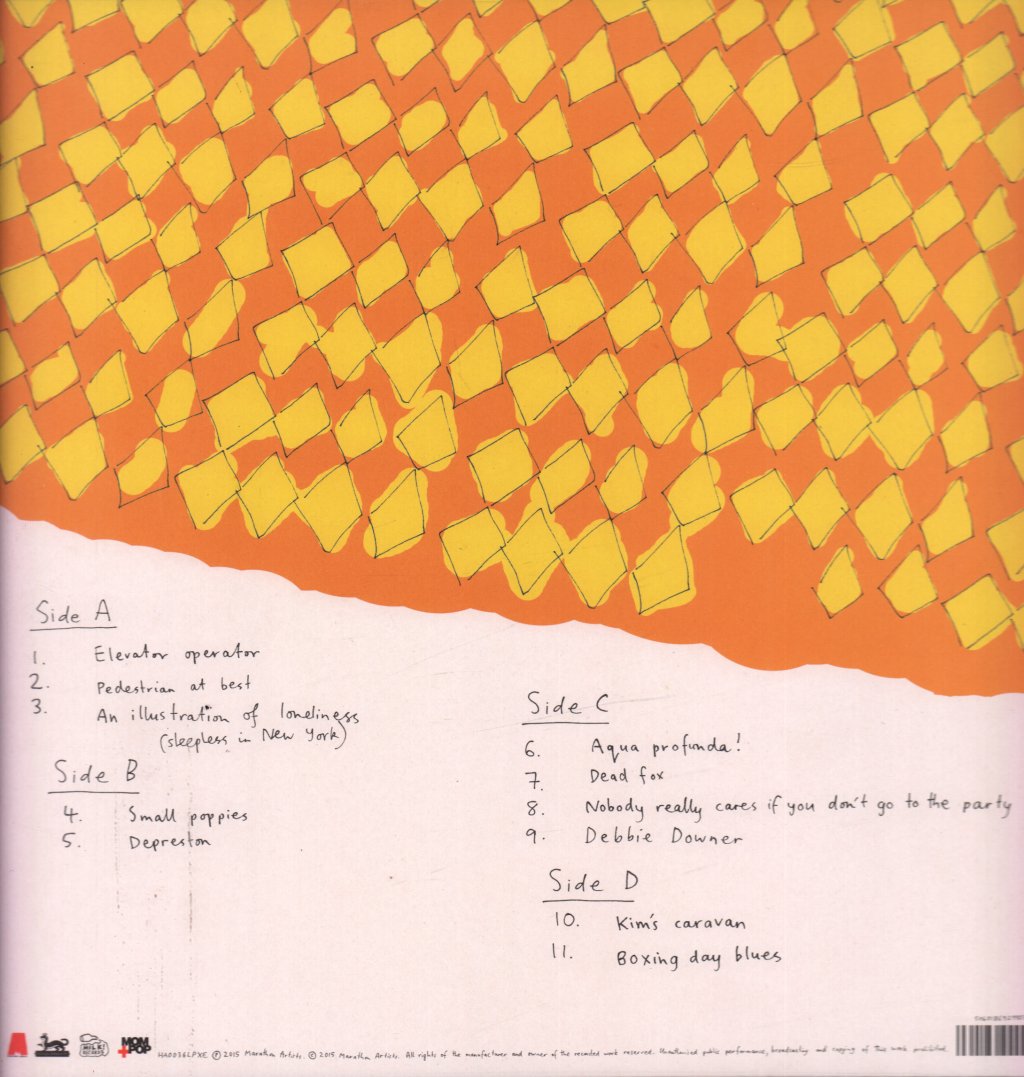 Side A
1. Elevator operator
2. Pedestrian at best
3. An illustration of loneliness
(sleepless in New York)
Side B
4. Small poppies
5. Depreston
Side C
6. Aqua profunda!
7. Dead fox
8. Nobody really cares if you don't go to the party
9. Debbie Downer
Side D
10. Kim's caravan
11. Boxing day blues
MILK! RECORDS
MOM
+POP
HA0036LPXE ℗ 2015 Marathon Artists. © 2015 Marathon Artists. All rights of the manufacturer and owner of the recorded work reserved. Unauthorised public performance, broadcasting and copying of this work prohibited.